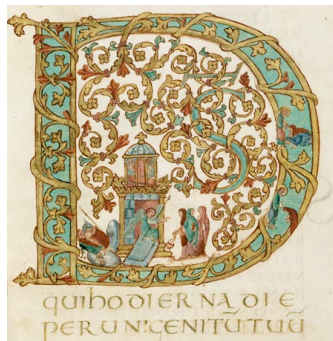 DS
quihodIERNADIE
PERUNIGENITŪTUŪ